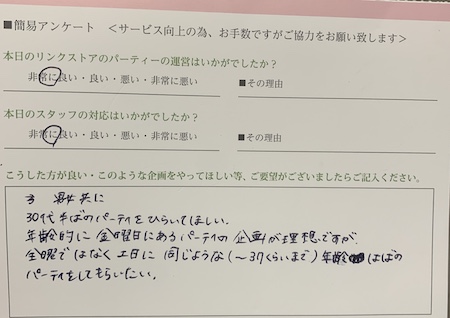 ■簡易アンケート <サービス向上の為、お手数ですがご協力をお願い致します>
本日のリンクストアのパーティーの運営はいかがでしたか?
非常に良い・良い・悪い・非常に悪い ■その理由
本日のスタッフの対応はいかがでしたか?
非常に良い・良い・悪い・非常に悪い ■その理由
こうした方が良い・このような企画をやってほしい等、ご要望がございましたらご記入ください。
男女共に
30代半ばのパーティをひらいてほしい。
年齢的に金曜日にあるパーティの企画が理想ですが
金曜ではなく土日に同じような(〜37くらいまで)年齢はばの
パーティをしてもらいたい。